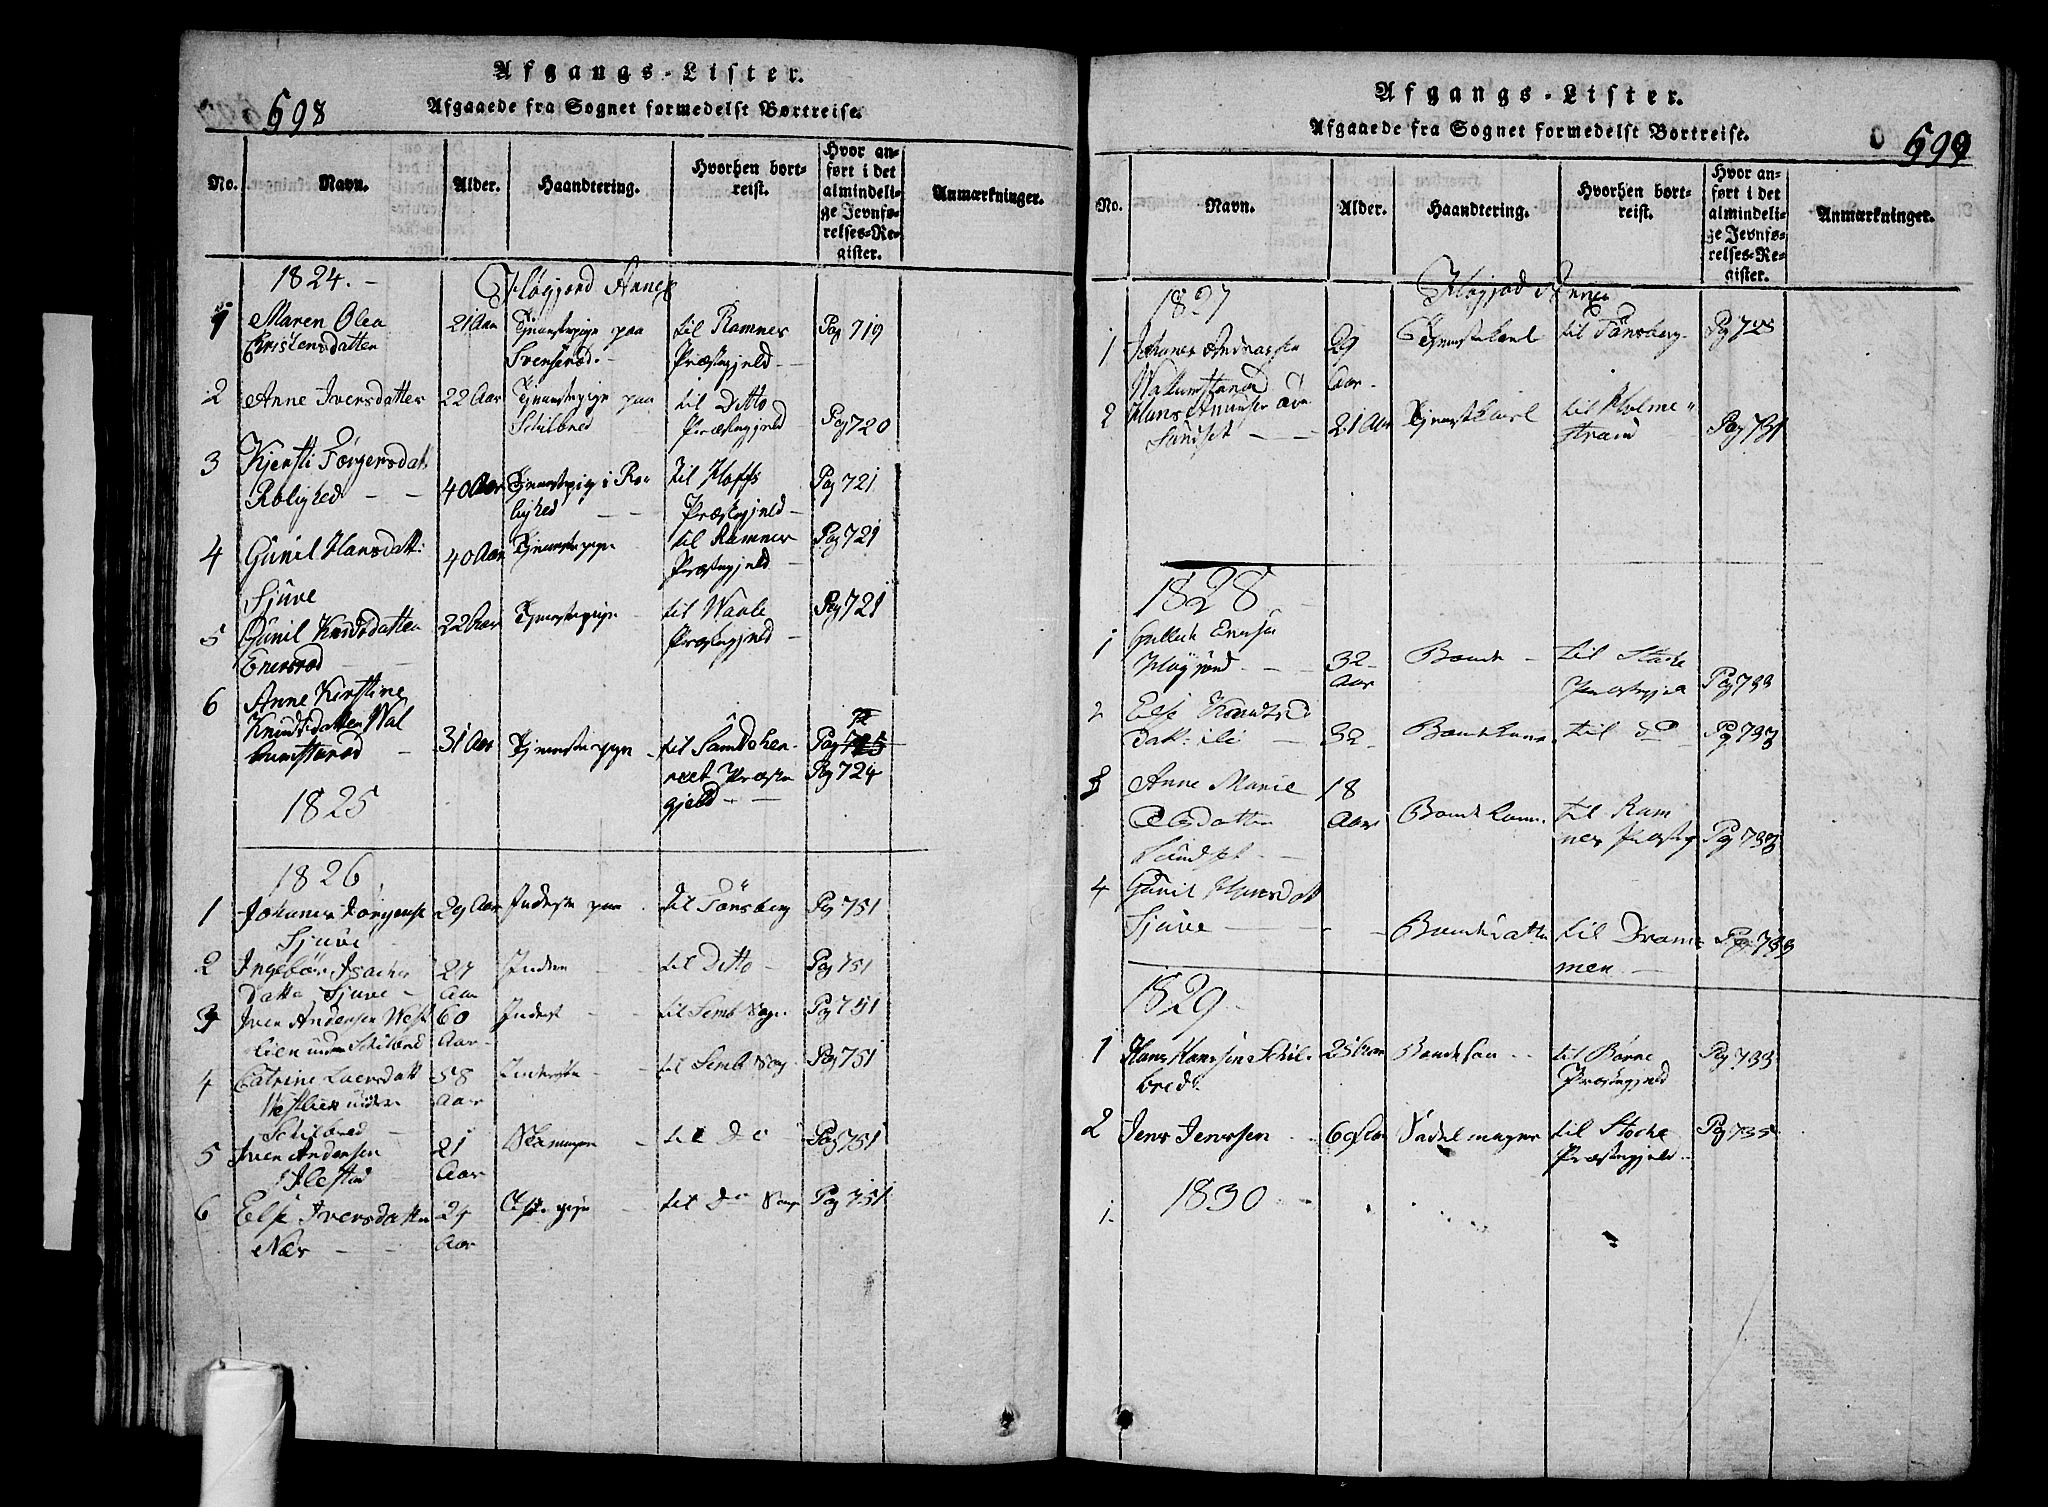 698
Afgangs-Lister.
Afgaaede fra Sognet formedelst Bortreise.
No.
Navn.
Alder.
Haandtering.
Hvorhen bort-
reist.
Hvor an-
ført i det
almindeli-
ge Jevnfø-
relses-Re-
gister.
Anmærkninger.
1824.
Høyjord Annex
1
Maren Olea
Christensdatter
21 Aar
Tjenestepige paa
til Ramnes
Præstegjeld
Pag 719
2
Anne Iversdatter
22 Aar
Tjenestepige paa
til Ditto
Præstegjeld
Pag 720
3
Kjersti Torgersdatt
Rolighed
40 Aar
Tjenestepige i Ro-
lighed
til Hoffs
Præstegjeld
Pag 721
4
Gunil Hansdatt:
Sjuve
40 Aar
Tjenestepige
til Ramnes
Præstegjeld
Pag 721
5
Gunil Knudsdatter
22 Aar
Tjenestepige
til Waale
Præstegjeld
Pag 721
6
Anne Kirstine
Knudsdatter Wal
31 Aar
Tjenestepige
til Sandeher-
red Præste
gjeld
Pag 725
Pag 724
1825
1826
1
Johannes Jörgens
Sjuve
29 Aar
Inderste
til Tönsberg
Pag 751
2
Ingebör Isachs
datter Sjuve
Aar
til Ditto
Pag 751
3
Iver Andersen West
lien under Schilbred
60
Aar
Inderst
til Semb Sogn
Pag 751
4
Catrine Laersdatt
Westlien under
Schilbred
58
Aar
Inderste
til Semb Sog
Pag 751
5
Iver Andersen
21
Aar
til Do
Pag 751
6
Else Iversdatter
Nær
24
Aar
til Do Sogn
Pag 751
Afgangs-Lister.
Afgaaede fra Sognet formedelst Bortreise.
699
No.
Navn.
Alder.
Haandtering.
Hvorhen bort-
reist.
Hvor an-
ført i det
almindeli-
ge Jevnfø-
relses-Re-
gister.
Anmærkninger.
1827
Høyjord Annex
1
Johannes Andreassen
29
Aar
Tjenestekarl
til Tönsberg
2
21 Aar
Tjenestekarl
til Holme-
strand
Pag 731
1828
1
Høyjord
32
Aar
Bonde
til Stocke
Præstegjeld
Pag 733
2
Else Knudts
datt:
32
Bondekone
til do
Pag 733
3
Anne Marie
Olsdatter
Sundset
18
Aar
til Ram
nes Præsteg
Pag 733
4
Gunil Hansdatt
Sjuve
Bondedatter
til Dram-
men
Pag 733
1829
1
Hans Hanssen Schil-
bred
25 Aar
Bondesøn
til Borre
Præstegjeld
Pag 733
2
Jens Jenssen
60 Aar
Sadelmager
til Stocke
Præstegjeld
Pag 735
1830
1.